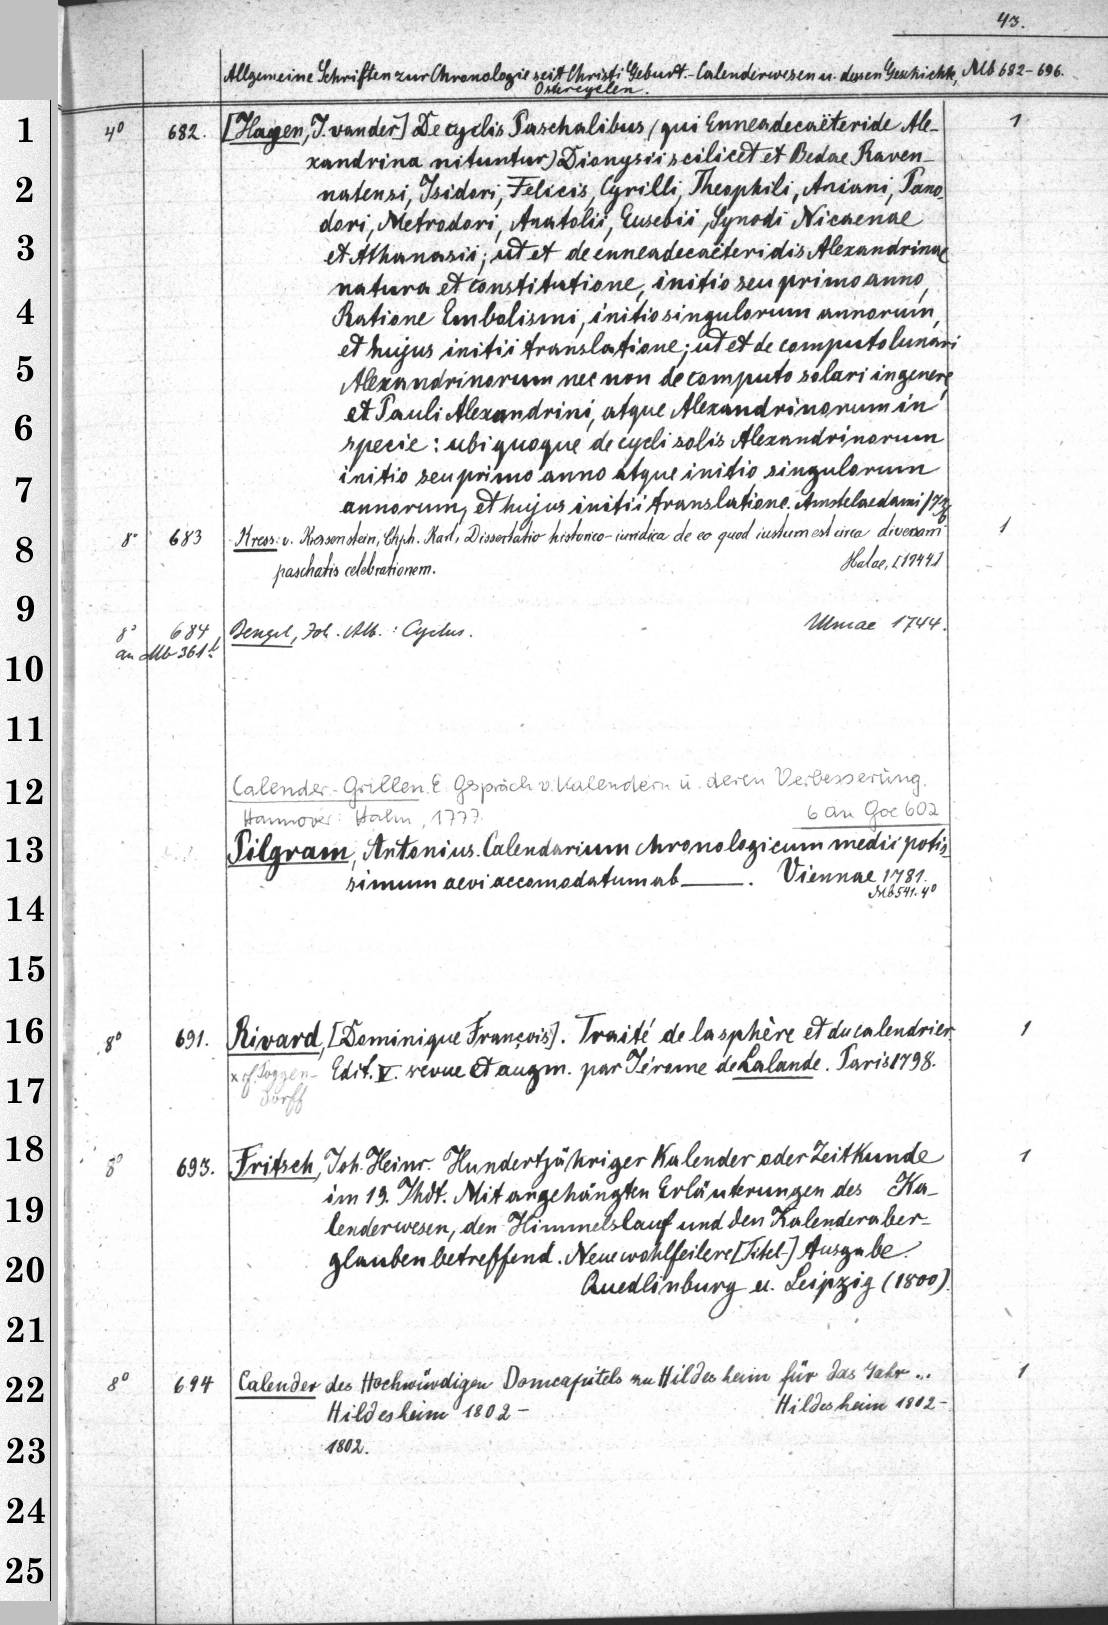 43.
Allgemeine Schriften zur Chronologie seit Christi Geburt. Calenderwesen u. dessen Geschichte, Mb 682-696.
Ostercyclen.
1
4° 682. [Hagen, J. van der] De cyclis Paschalibus (qui Enneadecaëteride Ale- 1
xandrina nituntur) Dionysii scilicet et Bedae Raven-
2
natensi, Isidori, Felicis, Cyrilli, Theophili, Aniani, Pano-
dori, Metrodori, Anatolii, Eusebii, Synodi Nicaenae
3
et Athanasii; ut et de enneadecaëteridis Alexandrinae
natura et constitutione, initio seu primo anno,
4
Ratione Embolismi, initio singulorum annorum,
et hujus initii translatione; ut et de computo lunari
5
Alexandrinorum nec non de computo solari in genere,
et Pauli Alexandrini, atque Alexandrinorum in
6
specie: ubi quoque de cycli solis Alexandrinorum
initio seu primo anno atque initio singulorum
7
annorum, et hujus initii translatione. Amstelaedami 1736
8
8° 683 Kress v. Kressenstein, Chph. Karl, Dissertatio historico-iuridica de eo quod iustum est circa diversam 1
paschatis celebrationem. Halae, [1744.]
9
8° 684 Bengel, Joh. Alb.: Cyclus. Ulmae 1744.
an Mb 361
10
11
12
Calender-Grillen. E. Gspräch v. Kalendern u. deren Verbesserung.
Hannover: Hahn, 1777. 6 an Goe 602
13
Pilgram, Antonius. Calendarium chronologicum medii potis-
simum aevi accomodatum ab ——. Viennae 1781.
Mb 541. 4°
14
15
16
8° 691. Rivard, [Dominique François]. Traité de la sphère et du calendrier. 1
x cf. Poggen- Edit. V. revue et augm. par Jérome de Lalande. Paris 1798.
dorff
17
18
8° 693. Fritsch, Joh. Heinr. Hundertjähriger Kalender oder Zeitkunde 1
im 19. Jhdt. Mit angehängten Erläuterungen des Ka-
19
lenderwesen, den Himmelslauf und den Kalenderaber-
glauben betreffend. Neue wohlfeilere [Titel-] Ausgabe.
20
Quedlinburg u. Leipzig (1800).
21
22
8° 694 Calender des Hochwürdigen Domcapitels zu Hildesheim für das Jahr ... 1
Hildesheim 1802 - Hildesheim 1802 -
23
1802.
24
25